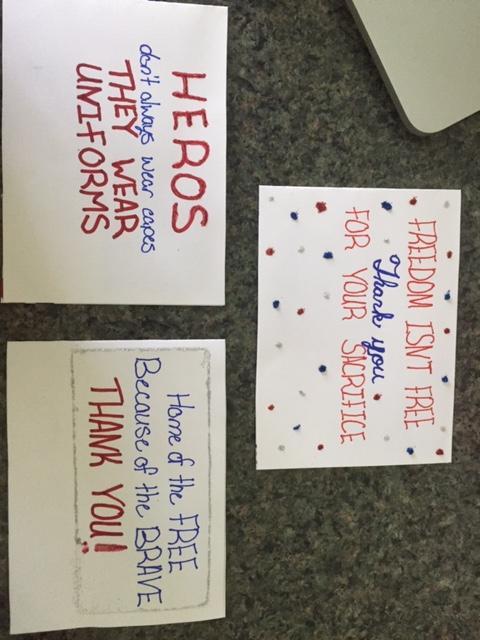 HEROS
don't always wear capes
THEY WEAR
UNIFORMS
FREEDOM ISNT FREE
Thank you
FOR YOUR SACRIFICE
Home of the FREE
Because of the BRAVE
THANK YOU!!